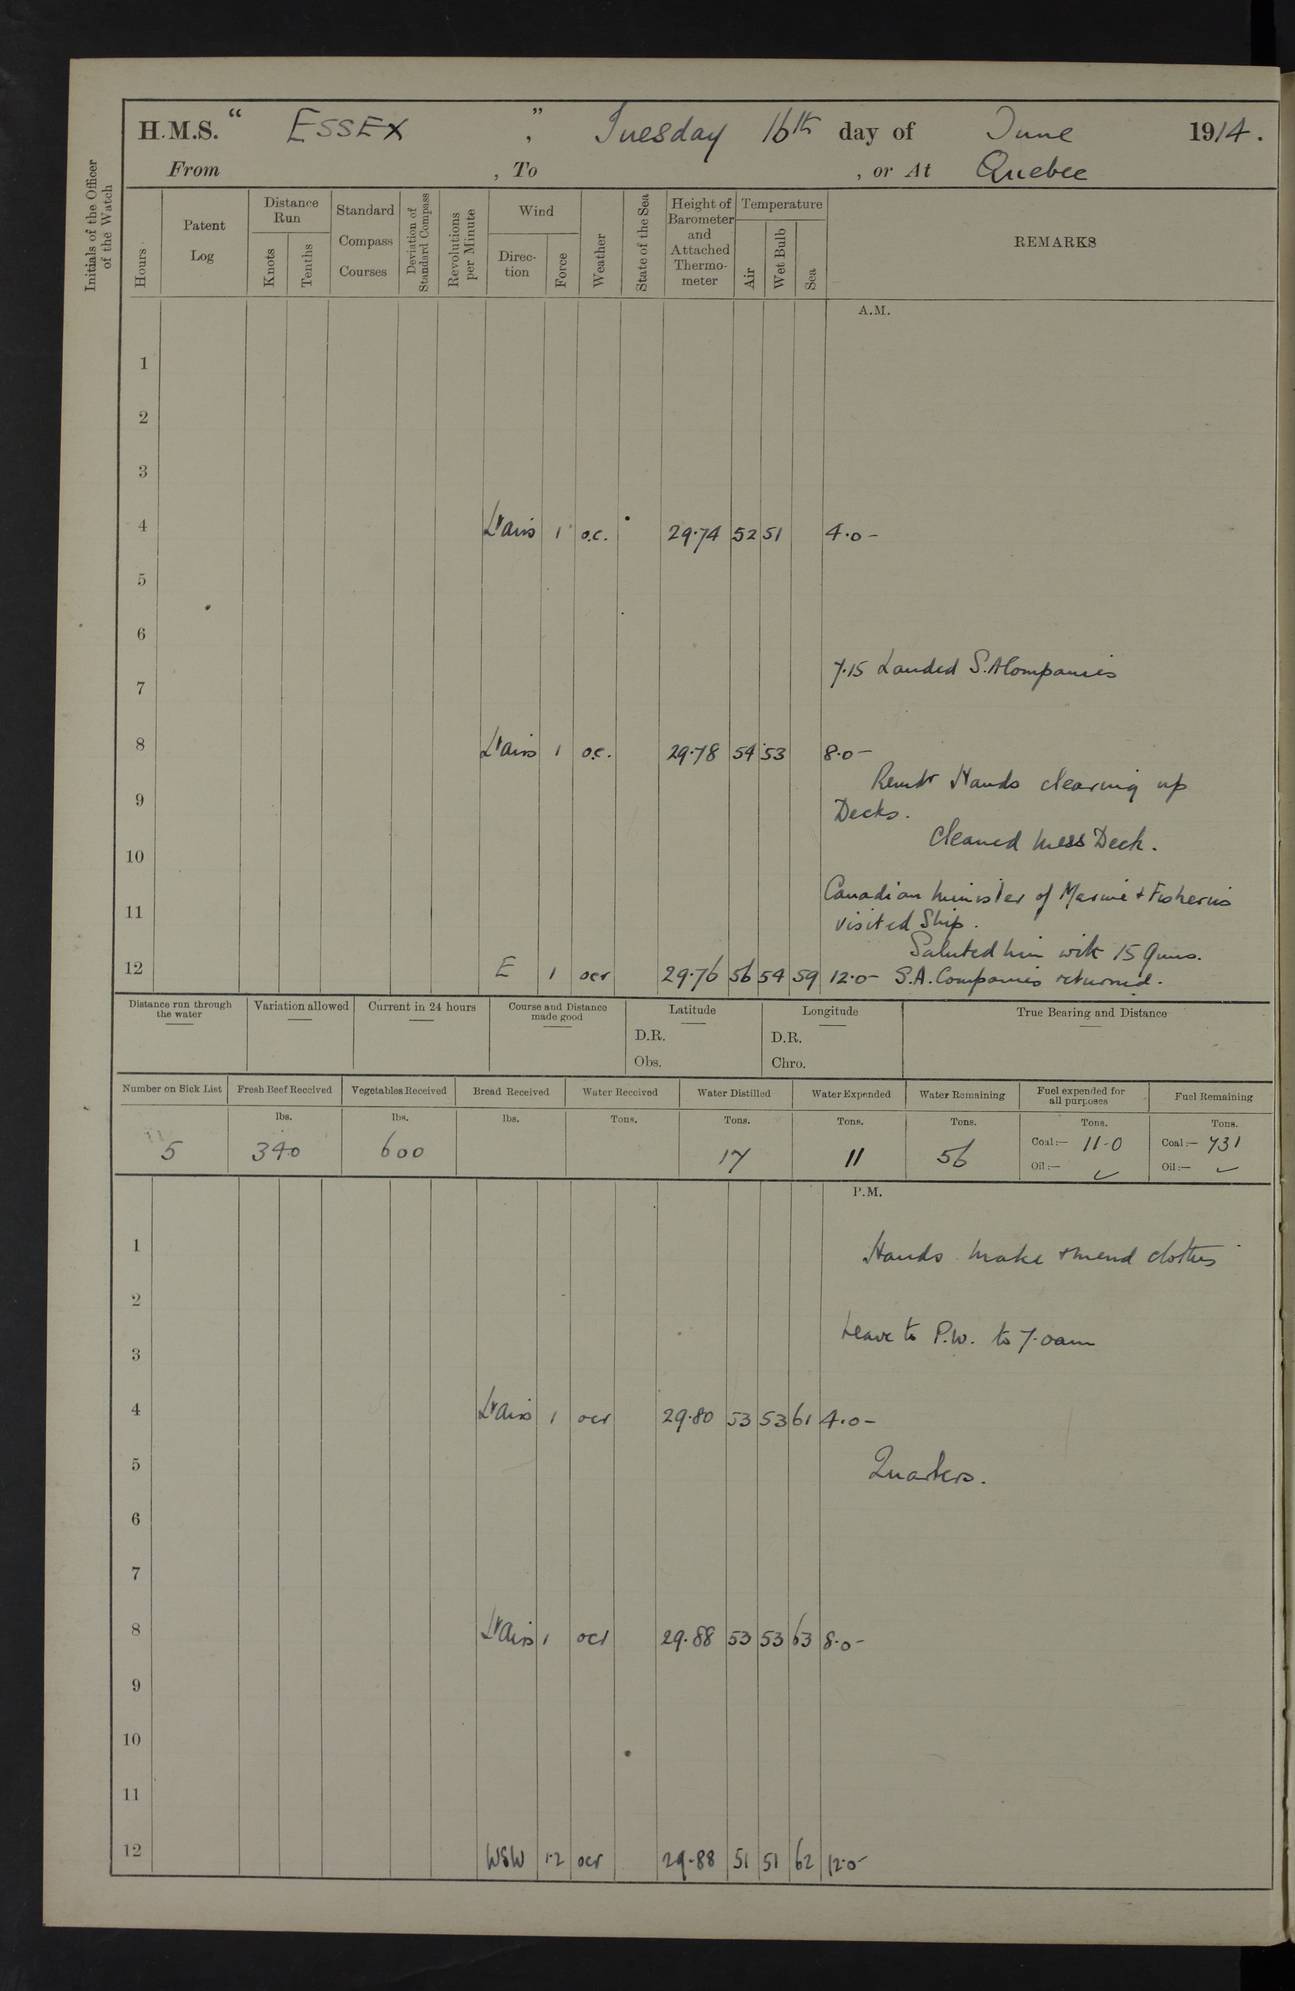 H.M.S. “ ESSEX ” , Tuesday 16th day of June 1914.
From , To , or At Quebec
Initials of the Officer of the Watch
Hours
Patent Log
Distance Run
Knots
Tenths
Standard Compass Courses
Deviation of Standard Compass
Revolutions per Minute
Wind
Direction
Force
Weather
State of the Sea
Height of Barometer and Attached Thermometer
Temperature
Air
Wet Bulb
Sea
REMARKS
A.M.
1
2
3
4 Lt airs 1 o.c. 29.74 52 51 4.0-
5
6
7.15 Landed S.A Companies
7
8 Lt airs 1 o.c. 29.78 54 53 8.0-
Remdr Hands clearing up
9
Decks.
Cleaned Mess Deck.
10
Canadian Minister of Marine & Fisheries
11
visited Ship.
Saluted him with 15 Guns.
12 E 1 ocr 29.76 56 54 59 12.0- S.A. Companies returned.
Distance run through the water
Variation allowed
Current in 24 hours
Course and Distance made good
Latitude
D.R.
Obs.
Longitude
D.R.
Chro.
True Bearing and Distance
Number on Sick List Fresh Beef Received Vegetables Received Bread Received Water Received Water Distilled Water Expended Water Remaining Fuel expended for all purposes Fuel Remaining
lbs. lbs. lbs. Tons. Tons. Tons. Tons. Tons. Tons.
5 340 600 17 11 56 Coal:— 11-0 Coal:— 731
Oil:— ✓ Oil:— ✓
P.M.
1 Hands make & mend clothes
2
Leave to P.W. to 7.0am
3
4 Lt airs 1 ocr 29.80 53 53 61 4.0-
5 Quarters.
6
7
8 Lt airs 1 ocr 29.88 53 53 63 8.0-
9
10
11
12 WSW 1-2 ocr 29.88 51 51 62 12.0-